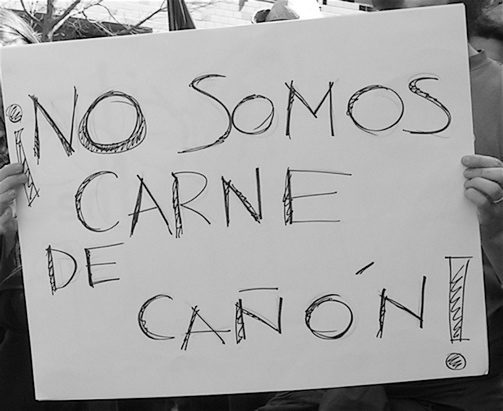 ¡NO SOMOS
CARNE
DE
CAÑÓN!